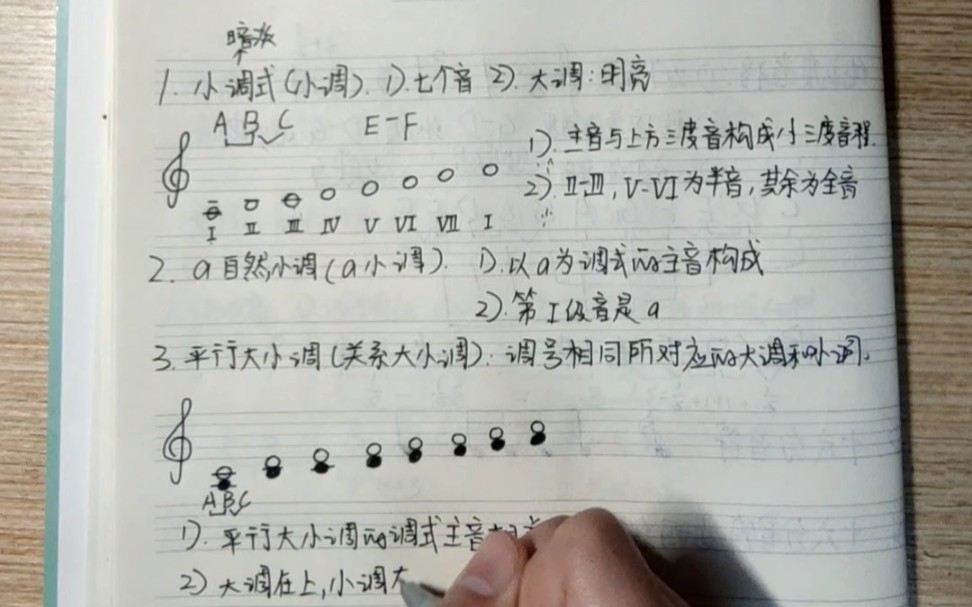 暗淡
1. 小调式(小调). 1).七个音 2). 大调:明亮
A B C E-F
1). 主音与上方三度音构成小三度音程.
2). II-III, V-VI为半音,其余为全音
I II III IV V VI VII I
2. a自然小调(a小调). 1).以a为调式的主音构成
2).第I级音是a
3.平行大小调(关系大小调):调号相同所对应的大调和小调.
A B C
1). 平行大小调的调式主音
2) 大调在上,小调